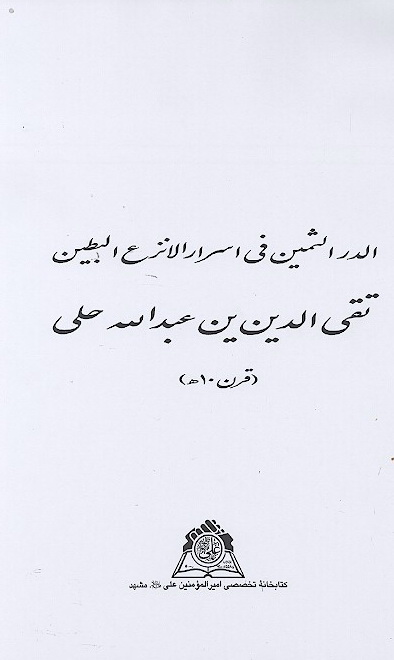 الدر الثمین فی اسرار الانزع البطین
تقی الدین ین عبدالله حلی
(قرن ۱۰ھ)
علی
کتابخانهٔ تخصصی امیرالمؤمنین علی علیه‌السلام مشهد